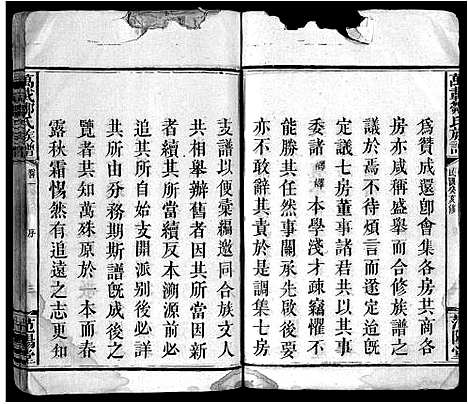 萬載鄒氏族譜
民國癸亥修
范陽堂
為贊成還即會集各房共商各
房亦咸樂從斯盛舉第茲事體
議於焉不待躊躇而決矣
定議七房董事諸君共以其事
委諸嶧嶧本學淺才疎竊懼不
能勝其任然事關承先啟後義
亦不敢辭其責於是調集七房
支譜以便彙編邀同合族文人
共相舉辦舊者因其所當因新
者續其所當續反本溯源前必
追其所自始支開派別後必詳
其所由分務期斯譜既成後之
覽者共知萬殊原於一本而春
露秋霜惕然有追遠之志更知
萬載鄒氏族譜
卷一
序
三
范陽堂